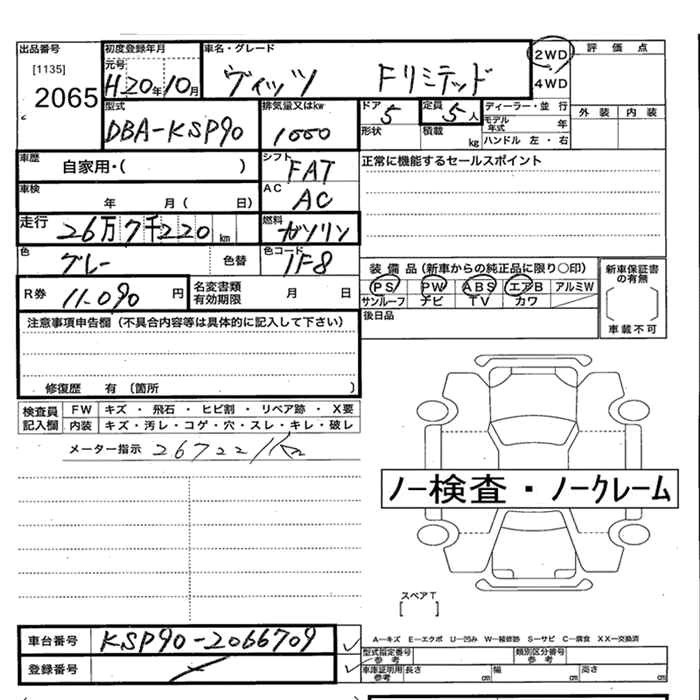 出品番号 初度登録年月 車名・グレード 2WD 評価点
[1135] 元号 4WD
2065 H20年10月 ヴィッツ Fリミテッド
型式 排気量又はkw ドア 定員 ディーラー・並行 外装 内装
DBA-KSP90 1000 5 5人 モデル年式 年
形状 積載 kg ハンドル 左・右
車歴 自家用・( ) シフト FAT 正常に機能するセールスポイント
車検 年 月( 日) AC AC
走行 26万7千220km 燃料 ガソリン
色 グレー 色替 色コード 1F8 装備品(新車からの純正品に限り○印) 新車保証書の有無
R券 11.090円 名変書類有効期限 月 日 PS PW ABS エアB アルミW
サンルーフ ナビ TV カワ 車載不可
注意事項申告欄(不具合内容等は具体的に記入して下さい) 後日品
修復歴 有(箇所 )
検査員記入欄 FW キズ・飛石・ヒビ割・リペア跡・X要
内装 キズ・汚レ・コゲ・穴・スレ・キレ・破レ
メーター指示
ノー検査・ノークレーム
スペアT
[ ]
車台番号 KSP90-2066709 A―キズ E―エクボ U―凹み W―補修跡 S―サビ C―腐食 XX―交換済
型式指定番号 参考 類別区分番号 参考
登録番号 車庫証明用参考 長さ cm 幅 cm 高さ cm